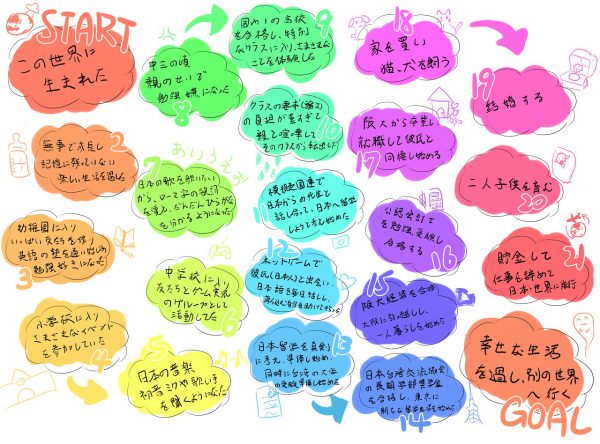 START
この世界に
生まれた
2
無事で成長し
記憶に残っていない
楽しい生活を過した
3
幼稚園に入り
いっぱい友だちを作り
英語の塾を通い始め
勉強好きになった
4
小学校に入り
さまざまなイベント
を参加していた
5
日本の音楽
初音ミクや歌い手
を聞くようになった
6
中学校に入り
友だちとゲーム実況
のグループとして
活動してた
7
あいうえお
日本の歌を歌いたい
がら、ローマ字の歌詞
を覚え、だんだんひらがな
を分かるようになった
8
中三の頃
親のせいで
勉強嫌になった
9
国内1の高校
を合格し、特別
なクラスに入り、さまざまな
ことを体験した
10
の負担が重すぎて
親と喧嘩し
そのクラスから転出した
11
模擬国連で
日本からの先生と
話し合って、日本へ留学
しようと考え始めた
12
ネットゲームで
彼氏(日本人)と出会い
日本語を毎日話し、
13
日本留学を真剣
に考え、準備し始め
同時に台湾の大学
の受験準備し始めた
14
日本台湾交流協会
の長期学部奨学金
を合格し、東京に
15
阪大経済を合格
大阪に引っ越しし、
一人暮らしを始めた
16
公認会計士
を勉強、受験し
合格する
17
阪大から卒業し
就職して彼氏と
同棲し始める
18
家を買い
猫、犬を飼う
19
結婚する
20
二人子供を育む
21
貯金して
仕事を辞めて
日本・世界に旅行
幸せな生活
を過し、別の世界
へ行く
GOAL